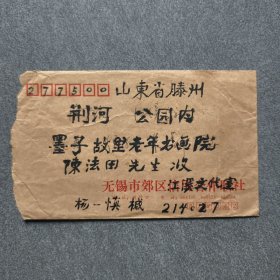 277500
山東省滕州
荆河 公园内
墨子故里老年书画院
陳法田先生收
无锡市郊区
江溪文化宫
杨一 缄
214027